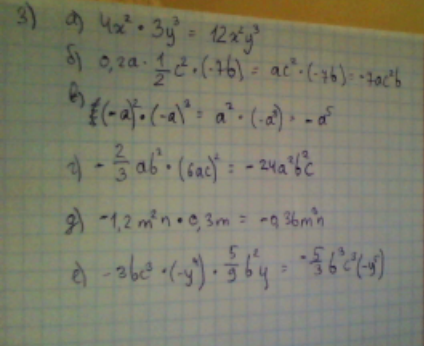 3) а) 4x² · 3y³ = 12x²y³
б) 0,2a · 1/2 c² · (-7b) = ac² · (-7b) = -7ac²b
в) (-a)² · (-a)³ = a² · (-a³) = -a⁵
г) -2/3 ab² · (6ac)² = -24a²b²c
д) -1,2m²n · 0,3m = -0,36m³n
е) -3bc³ · (-y⁴) · 5/9 b²y = -5/3 b³c³(-y⁵)